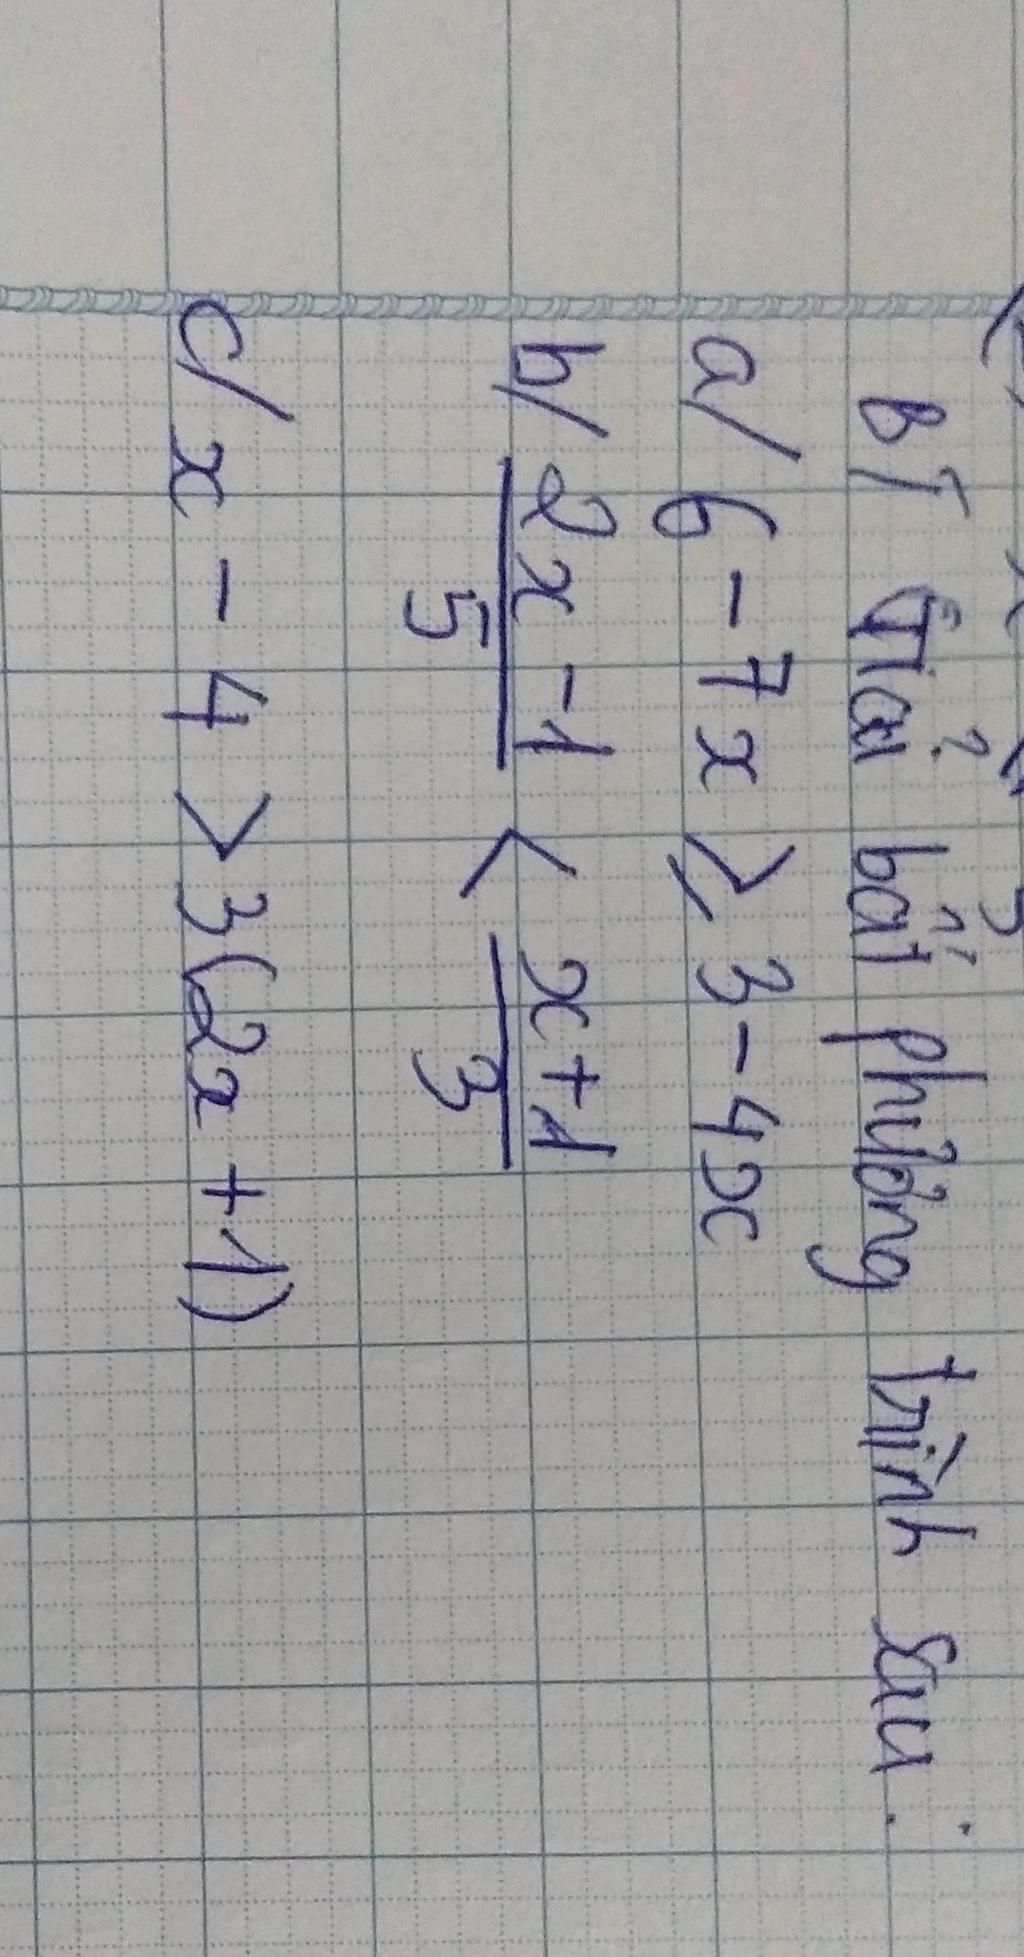 BT Giải bất phương trình sau :
a/ 6 - 7x ≥ 3 - 4x
b/ (2x - 1)/5 < (x + 1)/3
c/ x - 4 > 3(2x + 1)